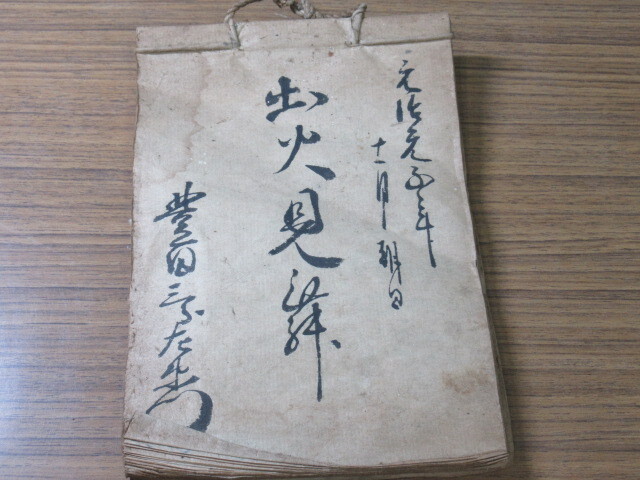 元治元子年
十一月朔日
出火見舞
豊田三郎左衛門